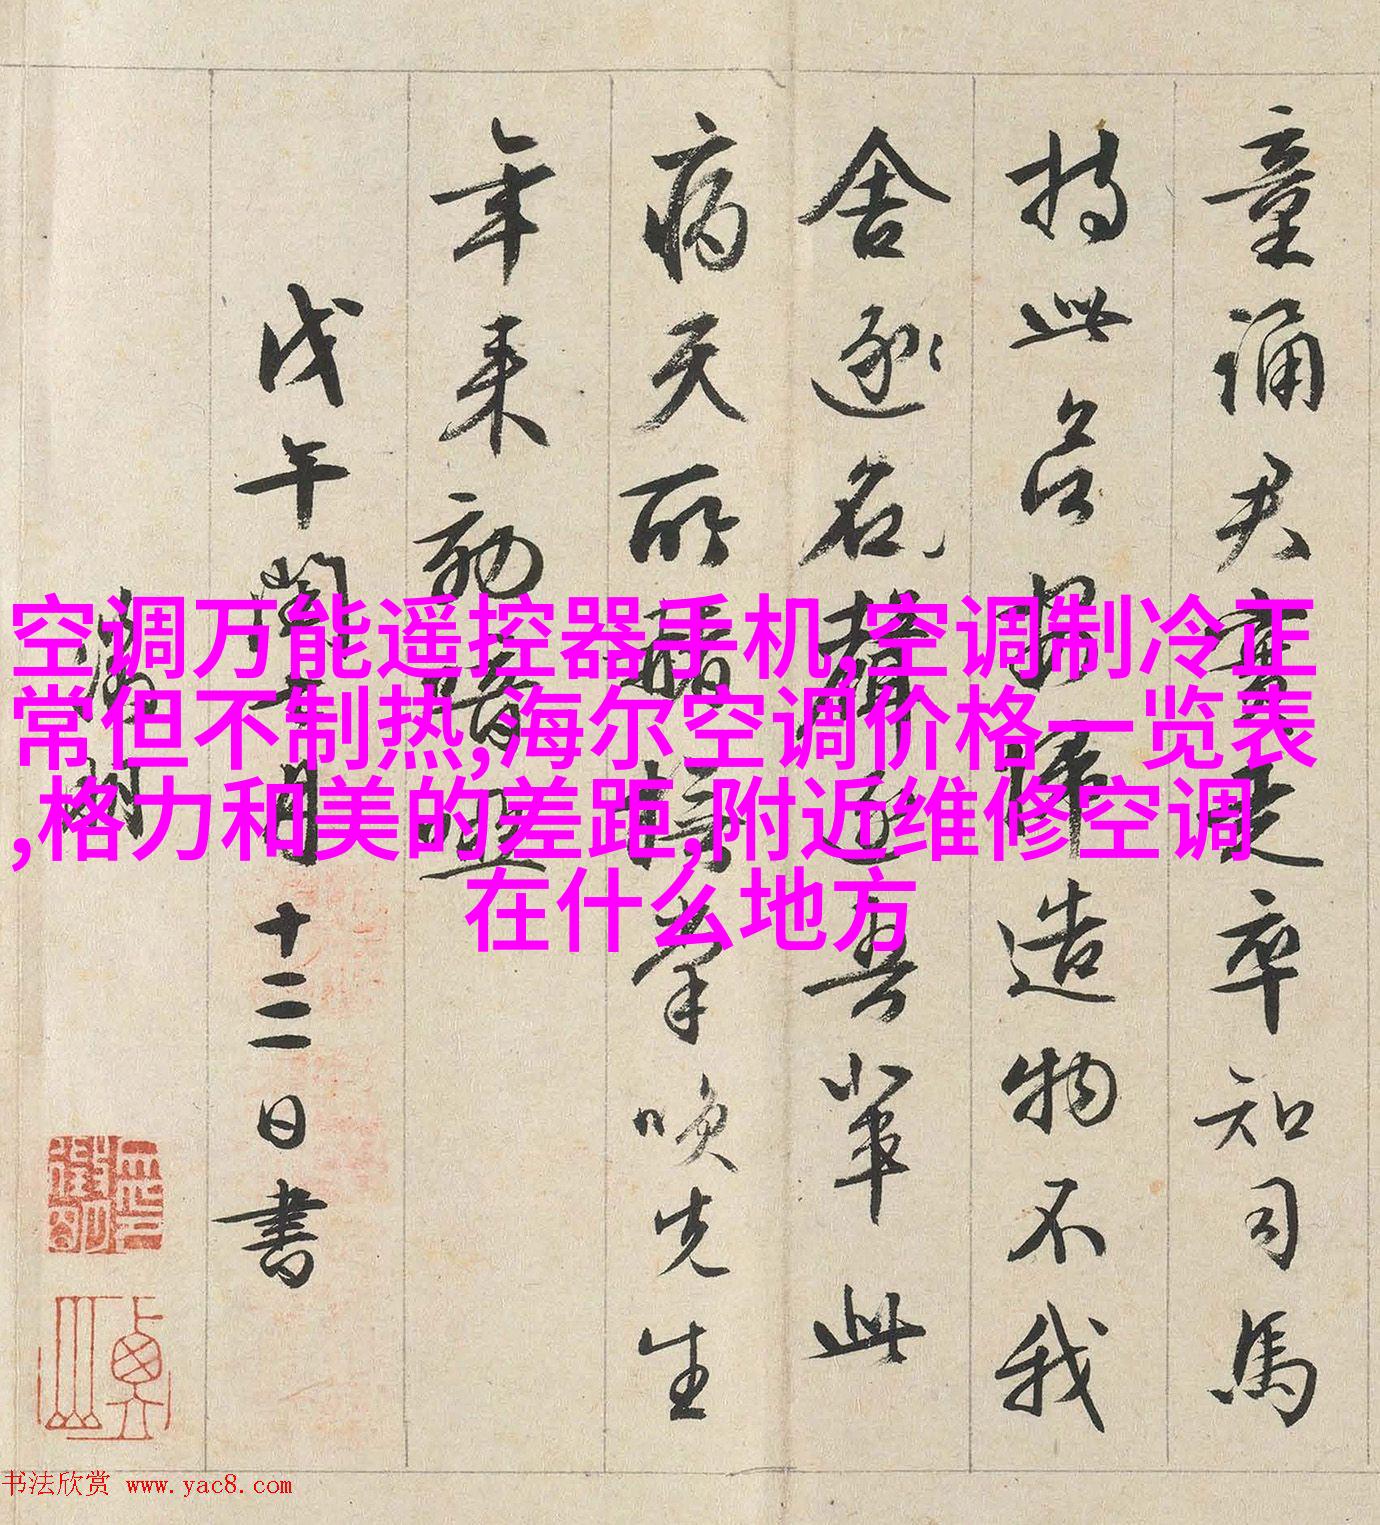 童誦君實走卒知司馬
持此歸造物不我
舍逐名聲逐吾輩此
病天所赭掌咲先生
年来効喑啞
戊午月十二日書
空调万能遥控器手机,空调制冷正
常但不制热,海尔空调价格一览表
,格力和美的差距,附近维修空调
在什么地方
书法欣赏 www.yac8.com